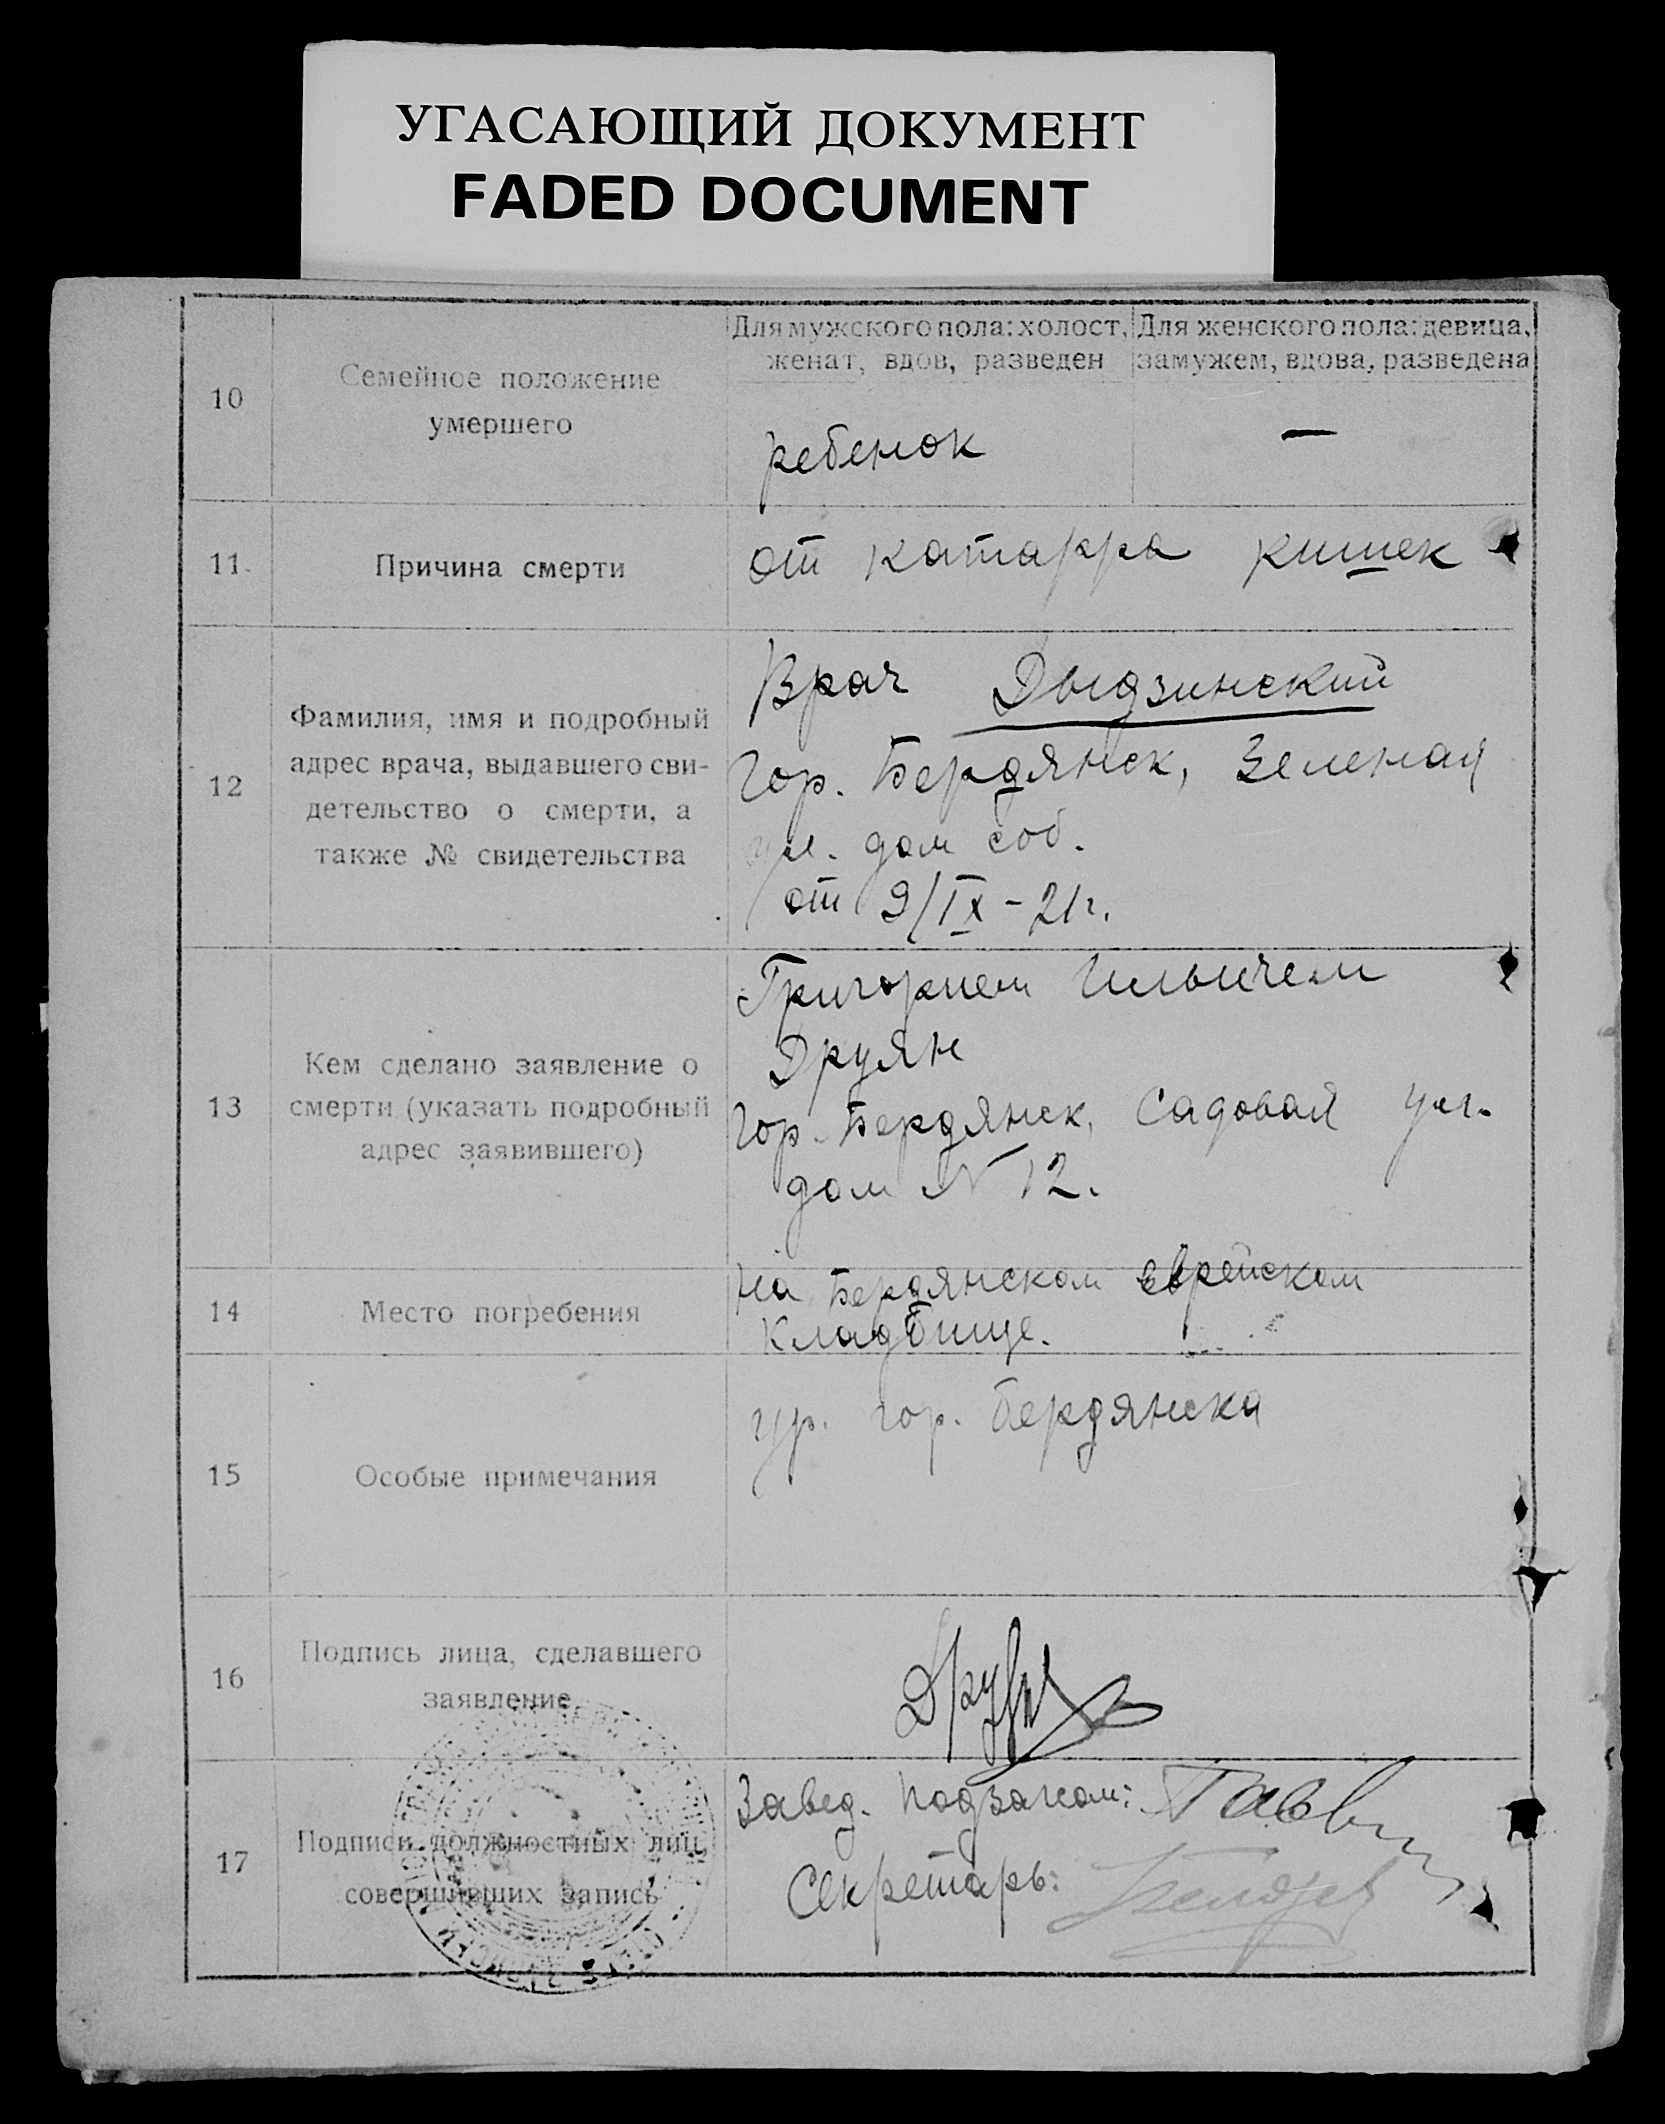 УГАСАЮЩИЙ ДОКУМЕНТ
FADED DOCUMENT
10
Семейное положение
умершего
Для мужского пола: холост,
женат, вдов, разведен
Для женского пола: девица,
замужем, вдова, разведена
ребенок
—
11
Причина смерти
от катарра кишек
12
Фамилия, имя и подробный
адрес врача, выдавшего сви-
детельство о смерти, а
также № свидетельства
Врач Дыдзинский
Гор. Бердянск, Зеленая
ул. дом соб.
от 9/IX - 21 г.
13
Кем сделано заявление о
смерти (указать подробный
адрес заявившего)
Григорием Ильичем
Друян
Гор. Бердянск, Садовая ул.
дом N 12.
14
Место погребения
На Бердянском еврейском
кладбище.
15
Особые примечания
ур. гор. Бердянска
16
Подпись лица, сделавшего
заявление
17
Подписи должностных лиц,
совершивших запись
Завед. Подзагсом:
Секретарь: